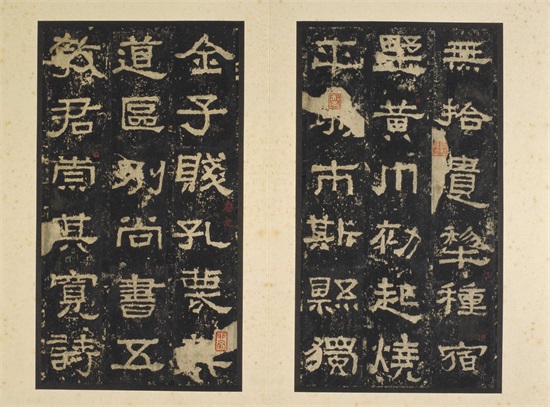 無拾遺犂種宿
壄黃巾初起燒
平市斯縣獨
全子賤孔蔑
道區別尚書五
教君崇其寬詩